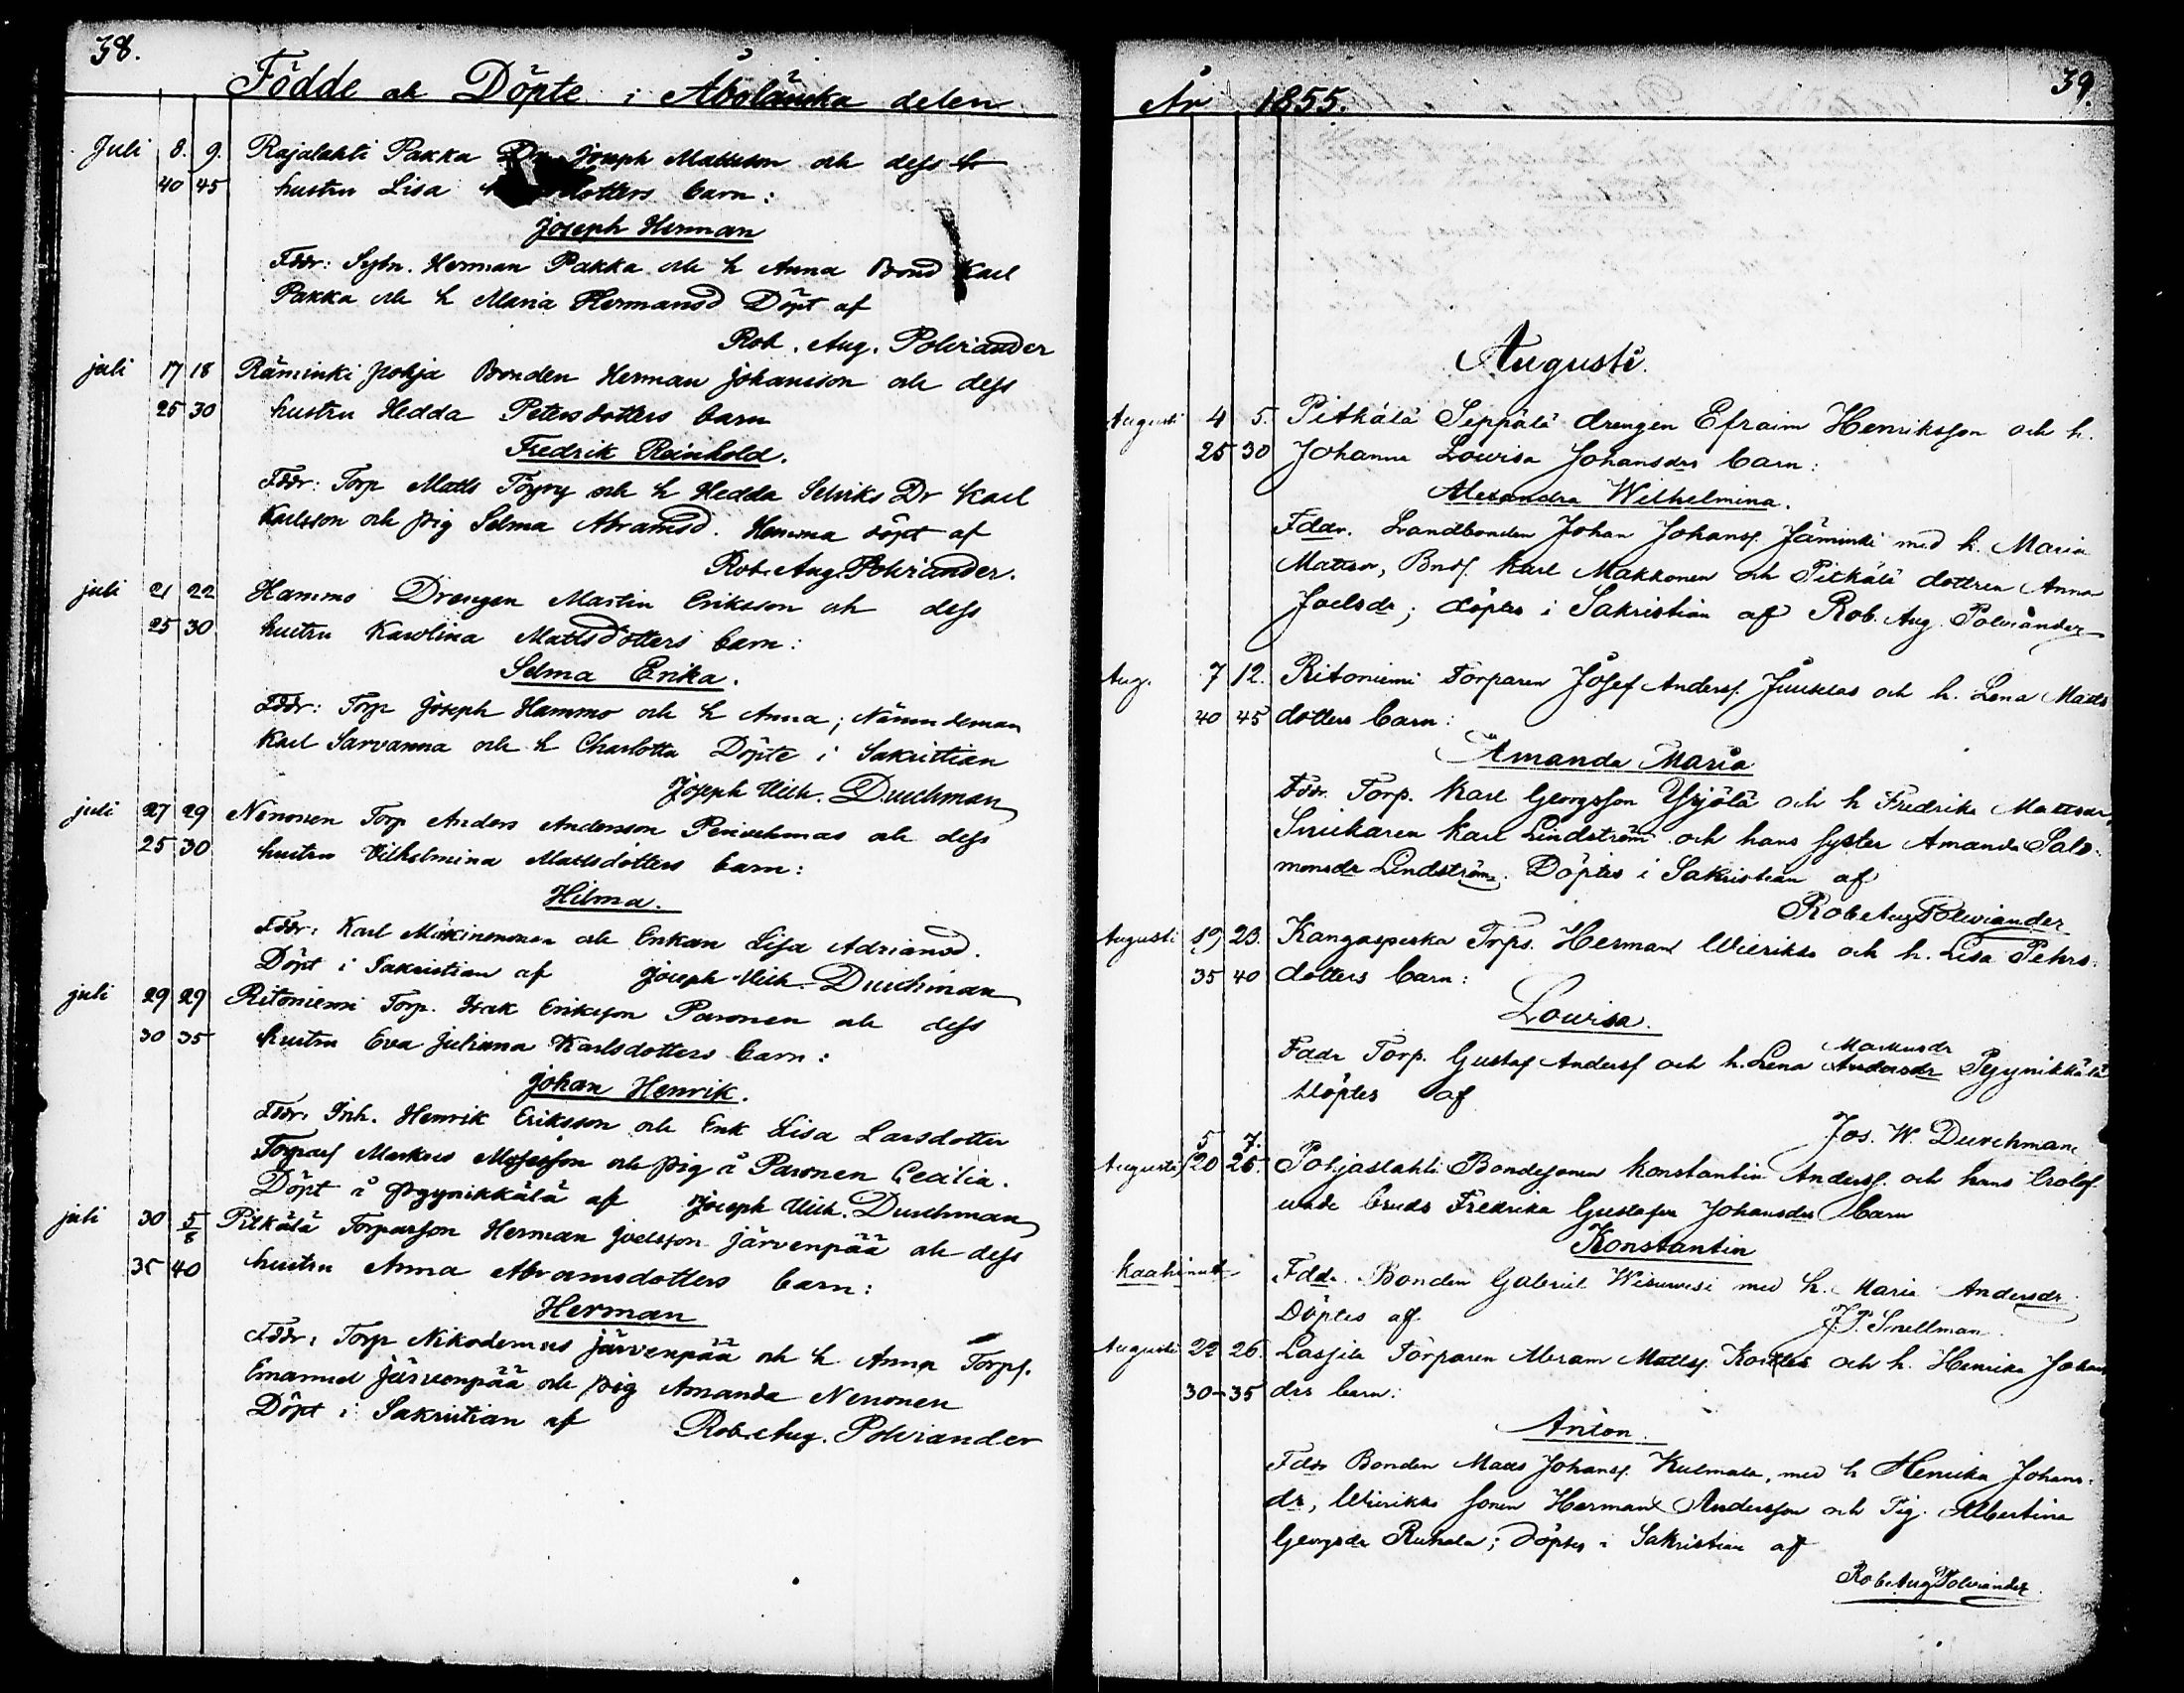 38.
Födde och Döpte i Åboländska delen
Juli 8. 9. Rajalahti Pakka Dr Joseph Mattsson och dess
40 45 hustru Lisa dotters barn:
Joseph Herman
Fddr: Sytn. Herman Pakka och h Anna Bond Karl
Pakka och h Maria Hermansd Döpt af
Rob. Aug. Polviander
juli 17 18 Räminki pohja Bonden Herman Johansson och dess
25 30 hustru Hedda Petersdotters barn
Fredrik Reinhold.
Fddr: Torp Matts Töyry och h Hedda Selviks Dr Karl
Karlsson och pig Selma Abramsd. Hemma döpt af
Rob. Aug. Polviander.
juli 21 22 Hammo Drengen Martin Eriksson och dess
25 30 hustru Karolina Mattsdotters barn:
Selma Erika.
Fddr: Torp Joseph Hammo och h Anna; Nämndeman
Karl Sarvanna och h Charlotta Döpte i Sakristian
Joseph Wilh. Durchman
juli 27 29 Nenonen Torp Anders Andersson och dess
25 30 hustru Vilhelmina Mattsdotters barn:
Hilma.
Fddr: Karl och Enkan Lisa Adriansd.
Döpt i Sakristian af Joseph Wilh. Durchman
juli 29 29 Ritoniemi Torp. Isak Eriksson Paronen och dess
30 35 hustru Eva Juliana Karlsdotters barn:
Johan Henrik.
Fddr: Inh. Henrik Eriksson och Enk Lisa Larsdotter
Torpars Markus Mosesson och pig å Paronen Cecilia.
Döpt å Pyynikkälä af Joseph Wilh. Durchman
juli 30 5/8 Pitkälä Torparson Herman Joelsson Järvenpää och dess
35 40 hustru Anna Abramsdotters barn:
Herman
Fddr: Torp Nikodemus Järvenpää och h Anna Torps.
Emanuel Järvenpää och pig Amanda Nenonen
Döpt i Sakristian af Rob. Aug. Polviander
År 1855.
39.
Augusti.
Augusti 4 5. Pitkälä Seppälä drengen Efraim Henriksson och h.
25 30 Johanna Lovisa Johansdrs barn:
Alexandra Wilhelmina.
Fddr. Landbonden Johan Johanss. Jäminki med h. Maria
Mattsdr, Bnds. Karl Makkonen och Pitkälä dottren Anna
Joelsdr; döptes i Sakristian af Rob. Aug. Polviander
Aug. 7 12. Ritoniemi Torparen Josef Anderss. Juuselas och h. Lena Matts
40 45 dotters barn:
Amanda Maria
Fddr. Torp. Karl Georgsson Yrjölä och h Fredrika Mattsdr,
Snickaren Karl Lindström och hans syster Amanda Salo-
monsdr Lindström. Döptes i Sakristian af
Rob Aug Polviander
Augusti 19 23. Kangaspeska Torps. Herman Wieriks och h. Lisa Pehrs-
35 40 dotters barn:
Lovisa.
Markusdr
Fddr Torp. Gustaf Anderss och h. Lena Andersdr Pyynikkälä
Döptes af
Jos. W. Durchman
5 7.
Augusti 20 25. Pohjaslahti Bondesonen Konstantin Anderss. och hans trolof-
vade bruds Fredrika Gustafva Johansdrs barn
Konstantin
Fddr. Bonden Gabriel Wisuvesi med h. Maria Andersdr
Döptes af J. P. Snellman.
Augusti 22 26. Lasjila Torparen Abram Matts. och h. Henrika Johans
30 35 drs barn:
Anton.
Fddr Bonden Matts Johanss. Kulmala, med h Henrika Johans-
dr, Wieriks sonen Herman Andersson och Pig. Albertina
Georgsdr Ruhala; döptes i Sakristian af
Rob. Aug Polviander.